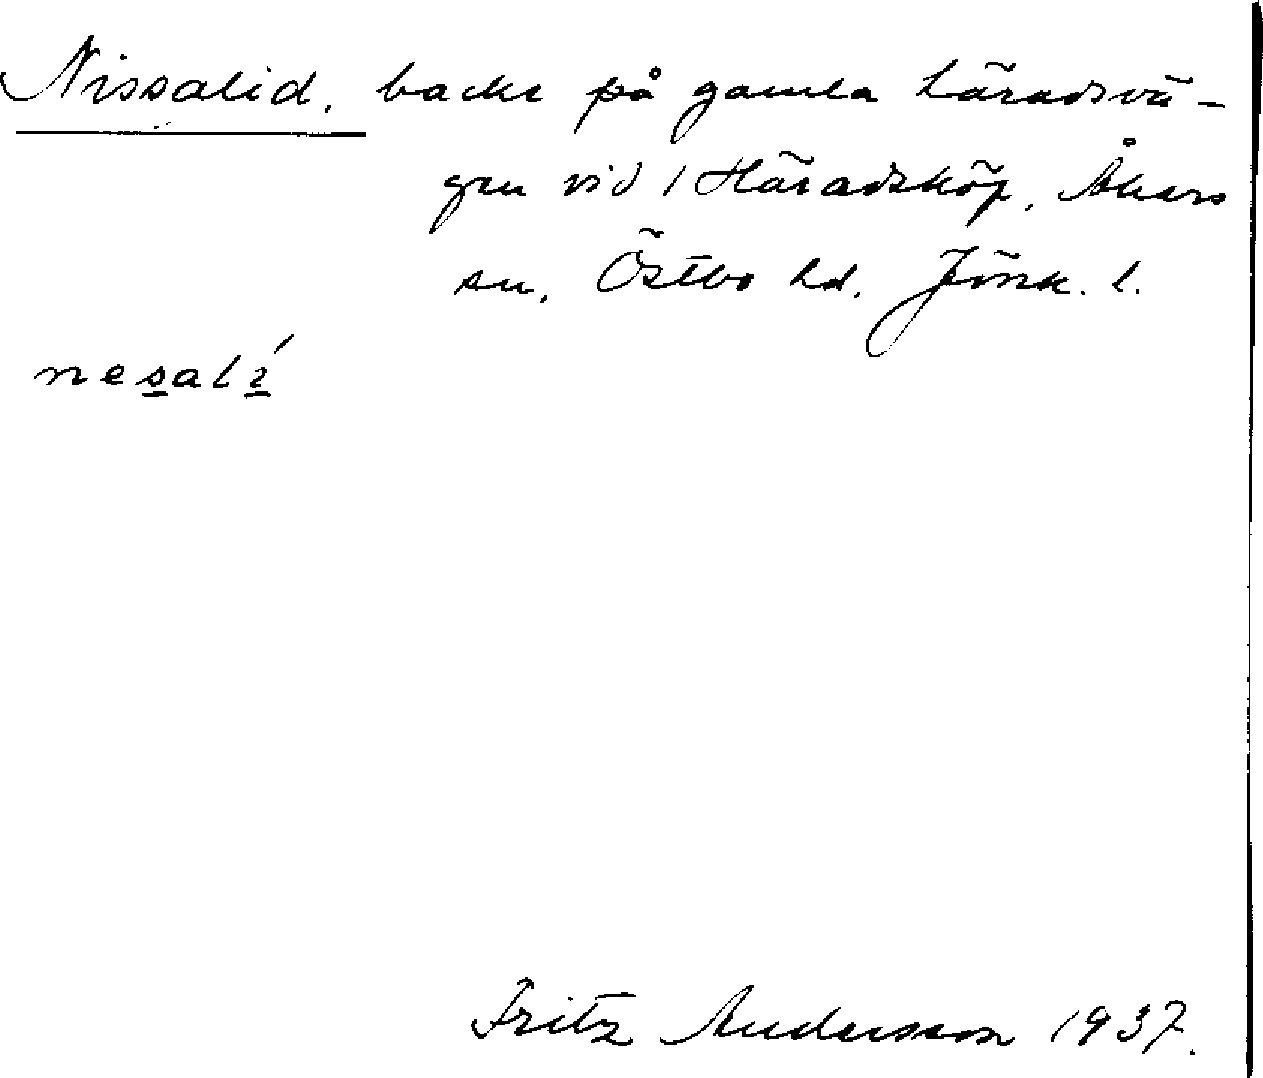 Nissalid, backe på gamla häradsvä-
gen vid 1 Häradsköp, Åkers
sn, Östbo hd. Jönk. l.
nesalí
Fritz Andersson 1937.